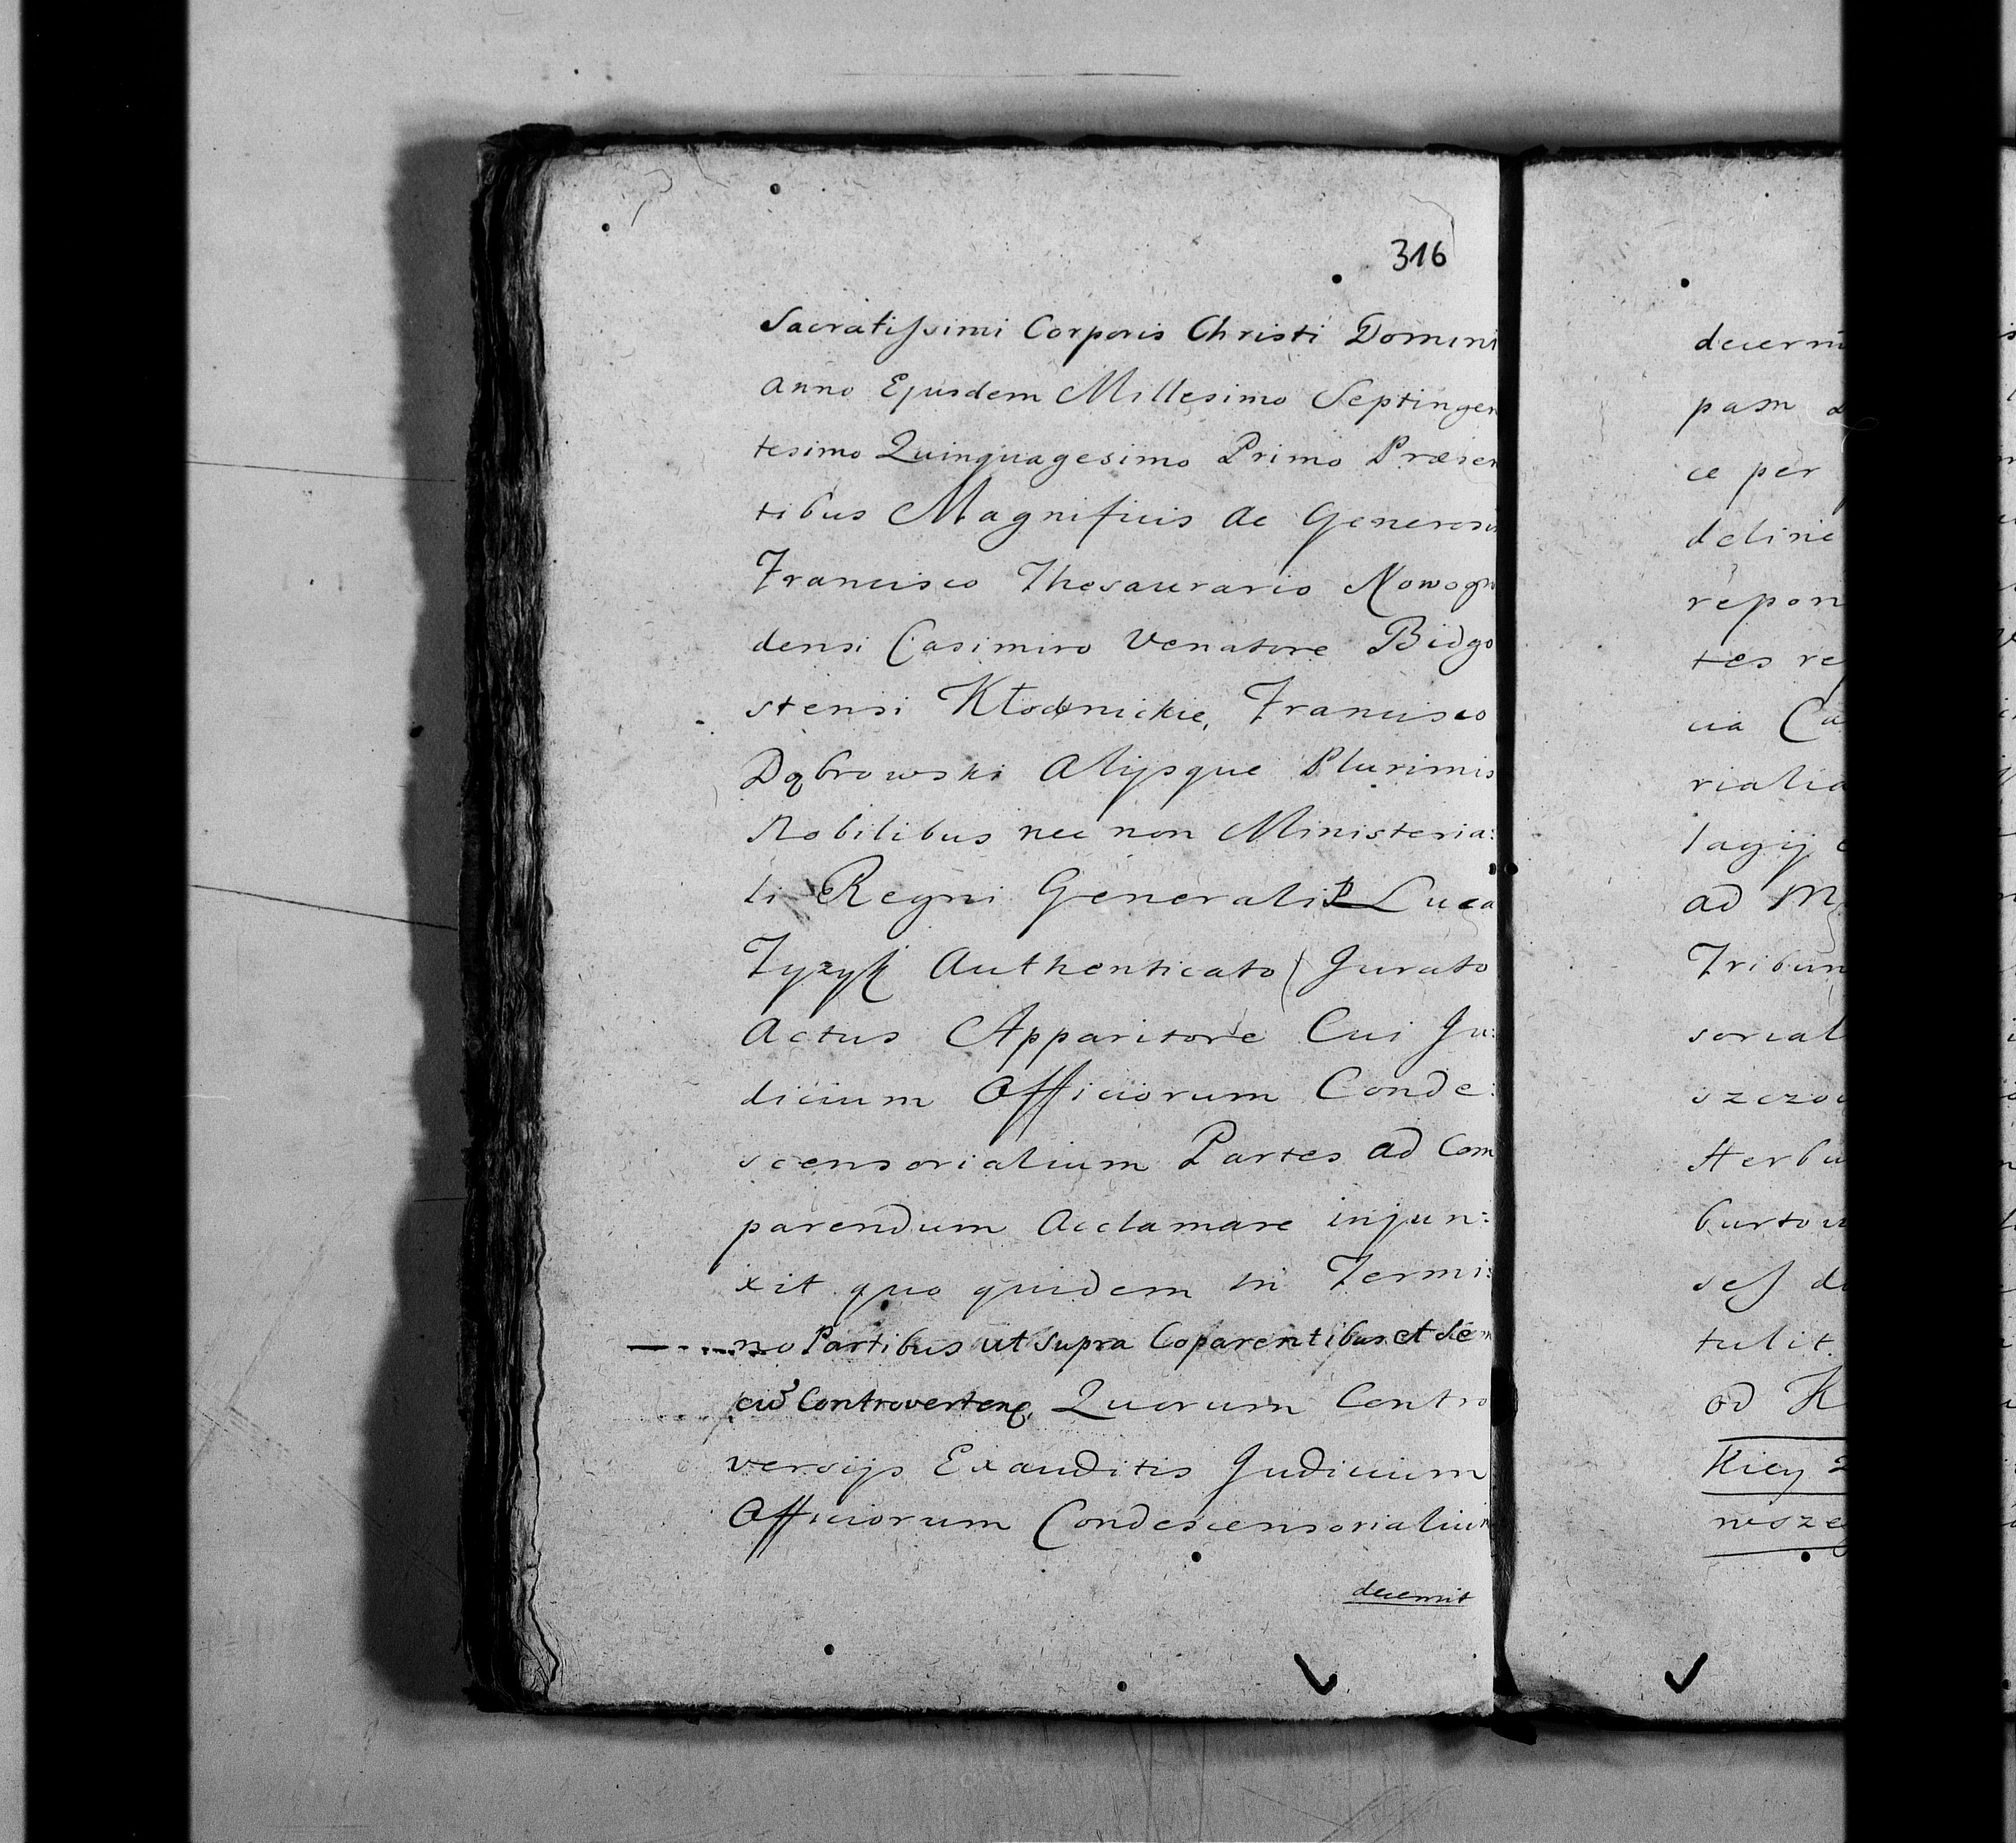 316
Sacratissimi Corporis Christi Domini
anno Ejusdem Millesimo Septingen
tesimo Quinquagesimo Primo Præsen
tibus Magnificis ac Generosis
Francisco Thesaurario Nowogro
densi Casimiro Venatore Bidgo
stensi Kłodnickie, Francisco
Dąbrowski Alijsque Plurimis
Nobilibus nec non Ministeria:
li Regni Generali P Luca
Tyzyk Authenticato Jurato
Actus Apparitore Cui Ju:
dicium Officiorum Conde:
scensorialium Partes ad Com
parendum Acclamare injun:
xit quo quidem in Termi:
no Partibus ut supra Coparentibus et
Controverten, Quorum Contro
versijs Exauditis Judicium
Officiorum Condescensorialium
decernit
decerni
pam
ce per
deline
repon
tes re
cia Ca
rialia
lagij
ad M
Tribun
sorial
szczow
Herbu
burtow
sess de
tulit.
od K
Kiey
wsze